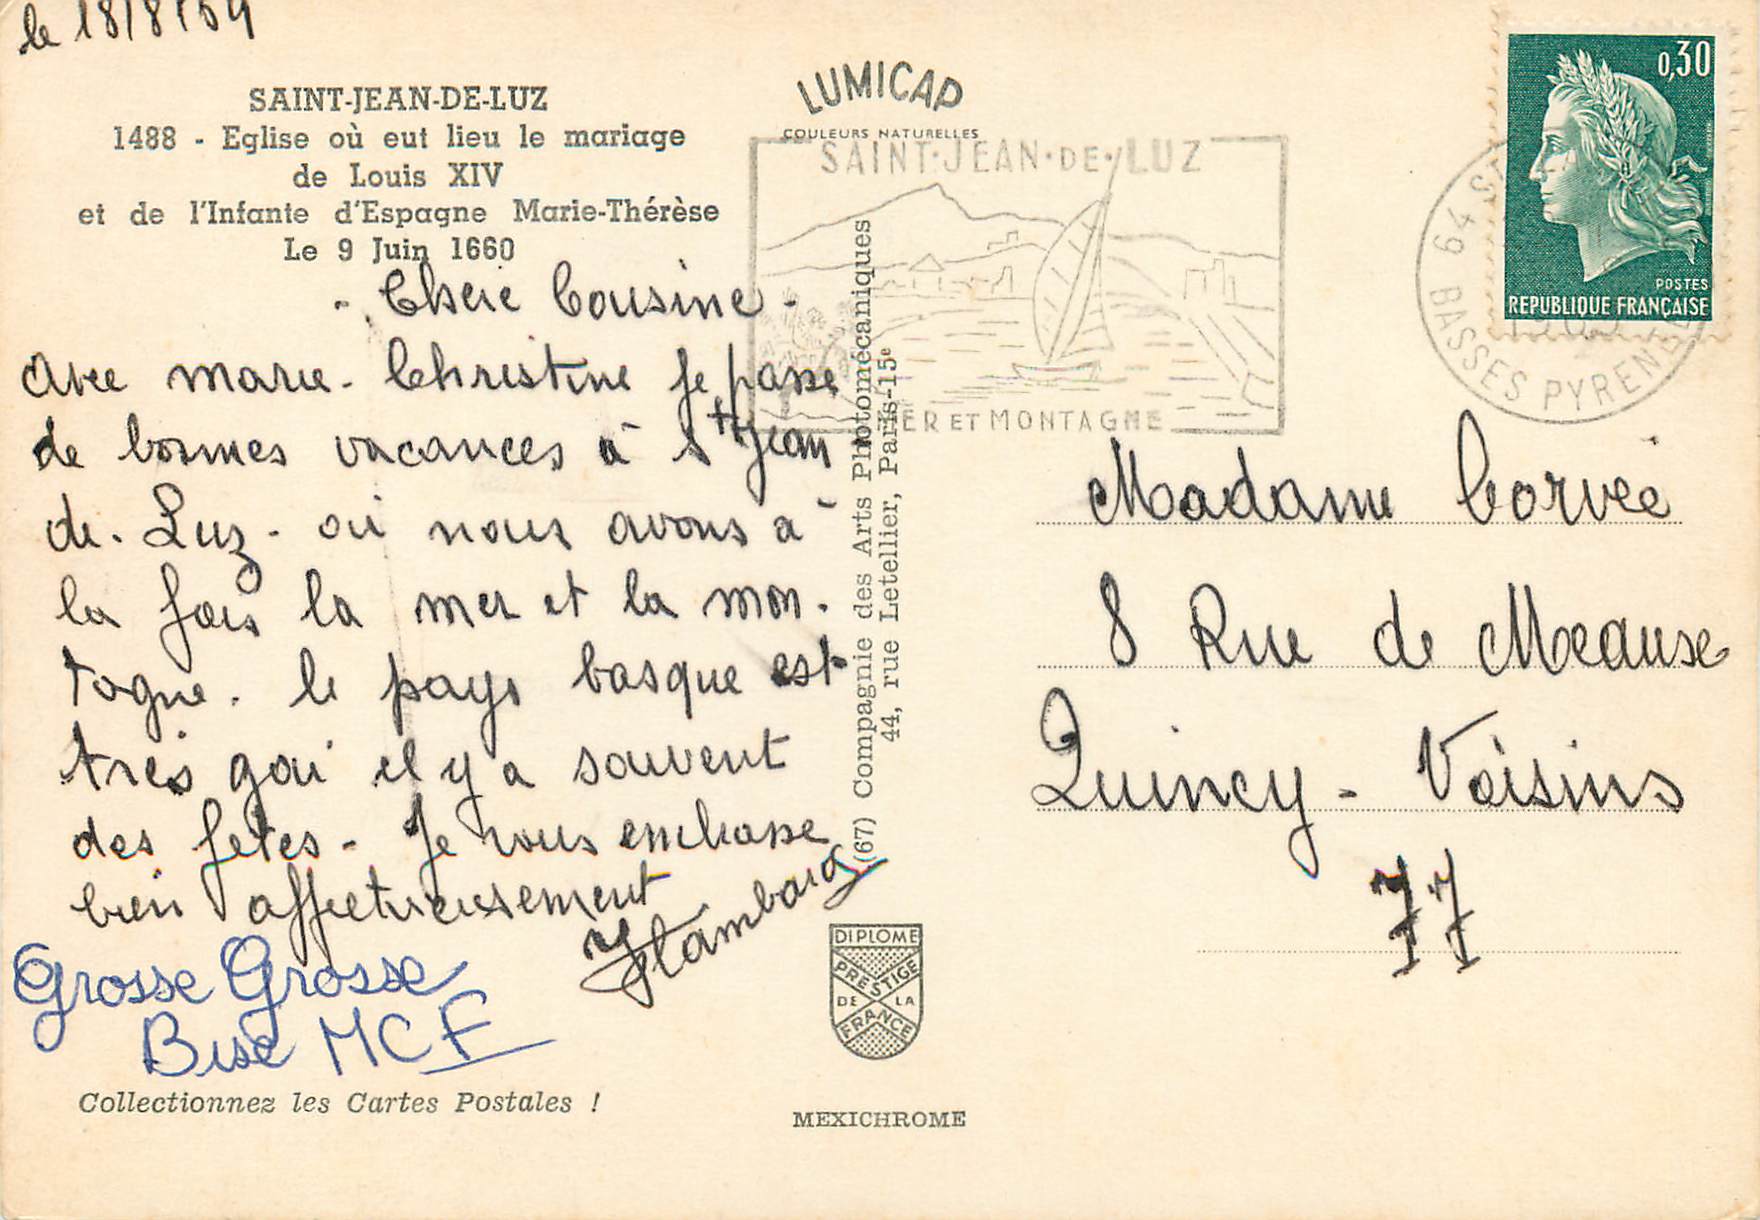 le 18/8/69
SAINT-JEAN-DE-LUZ
1488 - Eglise où eut lieu le mariage
de Louis XIV
et de l'Infante d'Espagne Marie-Thérèse
Le 9 Juin 1660
- Chere Cousine -
Avec marie-Christine je passe
de bonnes vacances à St Jean
de-Luz- où nous avons à
la fois la mer et la mon-
tagne. le pays basque est
très gai il y a souvent
des fetes - Je vous embrasse
bien affectueusement
Grosse Grosse
Bise MCF
Collectionnez les Cartes Postales !
LUMICAP
COULEURS NATURELLES
SAINT·JEAN·DE·LUZ
MER ET MONTAGNE
(67) Compagnie des Arts Photomécaniques
44, rue Letellier, Paris-15e
DIPLOME
PRESTIGE
DE LA
FRANCE
MEXICHROME
0,30
POSTES
REPUBLIQUE FRANÇAISE
64 S
BASSES PYRENEES
Madame Corvée
8 Rue de Meause
Quincy - Voisins
77